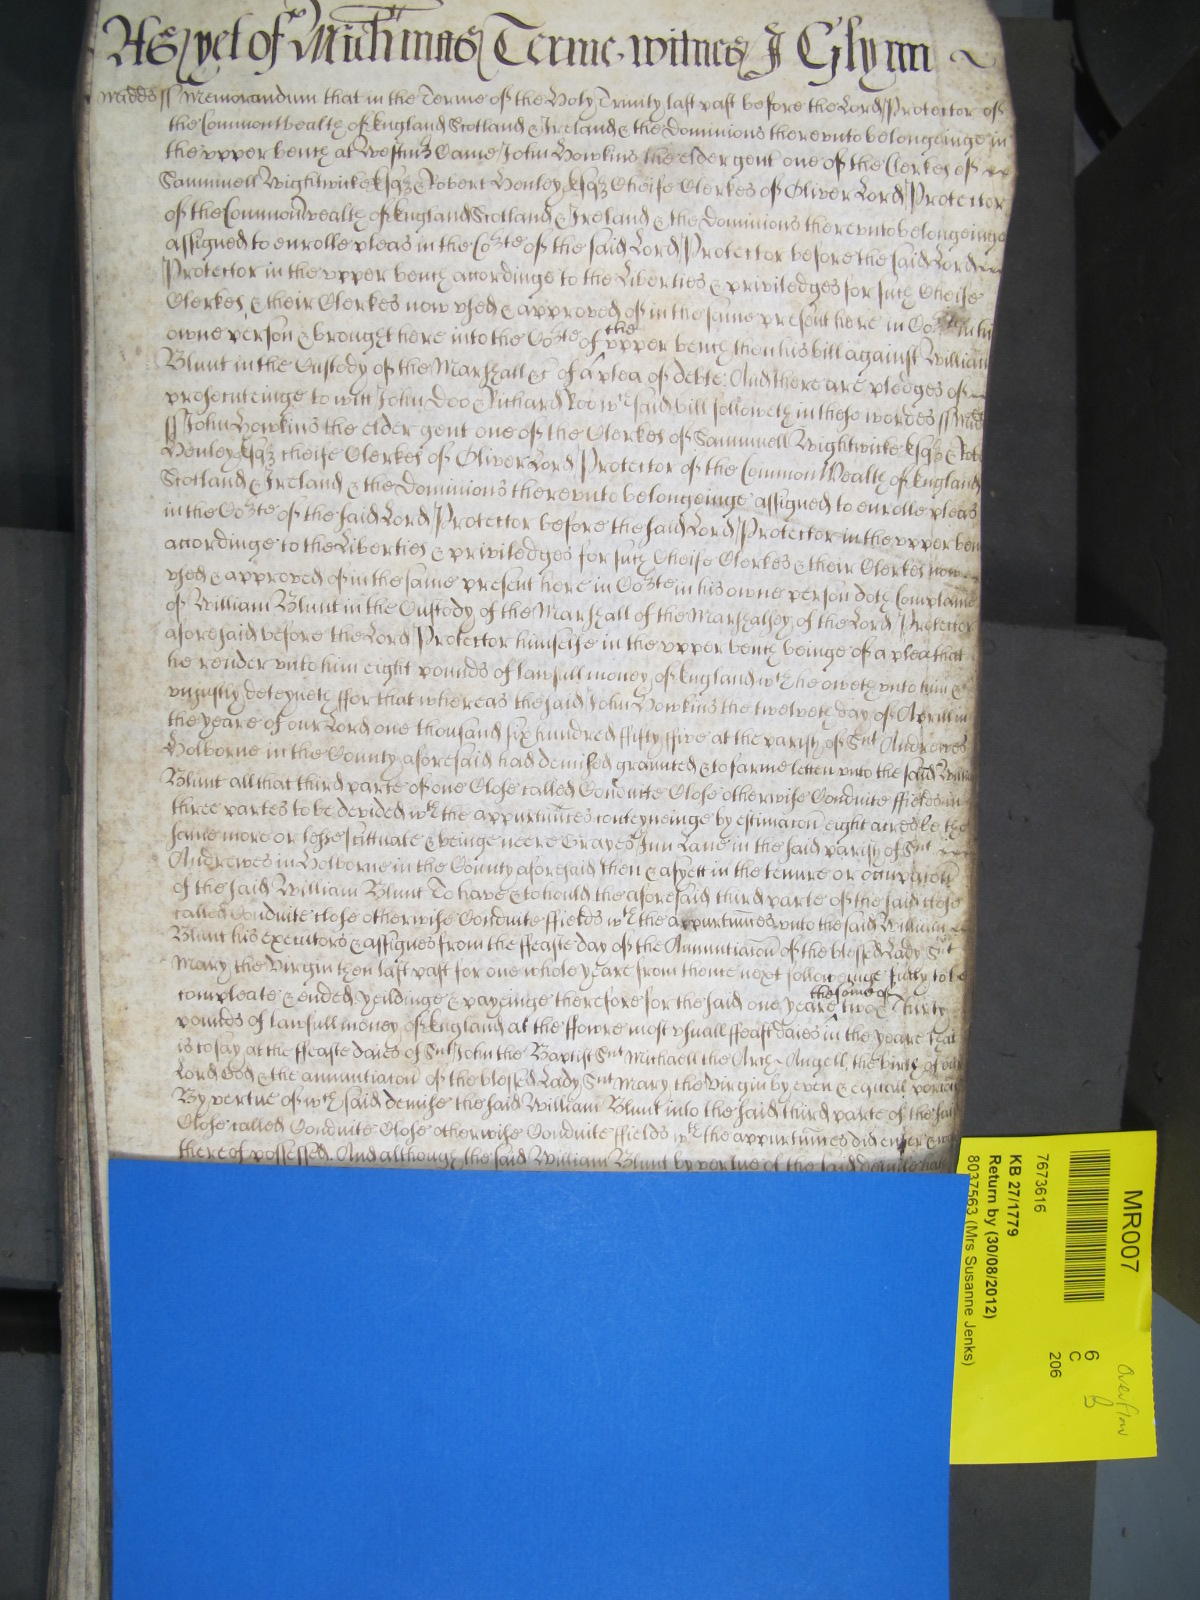 As yet of Mich'mas Terme witnes J Glynn
Midds ss Memorandum that in the Terme of the Holy Trinity last past before the Lord Protector of
the Commonwealth of England Scotland & Ireland & the Dominions therevnto belongeinge in
the vpper bench at Westm̃ Came John Howkins the elder gent one of the Clerkes of
Sammuell Wightwicke Esqz & Robert Henley Esqz Cheife Clerkes of Oliver Lord Protector
of the Commonwealth of England Scotland & Ireland & the Dominions therevnto belongeinge
assigned to enrolle pleas in the Co:rte of the said Lord Protector before the said Lord
Protector in the vpper bench accordinge to the Liberties & priviledges for such Cheife
Clerkes & their Clerkes now vsed & approved of in the same present here in Co:rte in his
owne p'son & brought here into the Co:rte of the vpper bench then his bill against William
Blunt in the Custody of the Marshall &c of a plea of debte And there are pledges of
prosecuteinge to witt John Doo & Richard Roo wch said bill followeth in these wordes ss Midd
ss John Howkins the elder gent one of the Clerkes of Sammuell Wightwicke Esqz & Robt
Henley Esqz cheife Clerkes of Oliver Lord Protector of the Common Wealth of England
Scotland & Ireland & the Dominions therevnto belongeinge assigned to enrolle pleas
in the Co:rte of the said Lord Protector before the said Lord Protector in the vpper ben
accordinge to the Liberties & priviledges for such Cheife Clerkes & their Clerkes now
vsed & approved of in the same present here in Co:rte in his owne person doth Complaine
of William Blunt in the Custody of the Marshall of the Marshalsey of the Lord Protector
aforesaid before the Lord Protector himselfe in the vpper bench beinge of a plea that
he render vnto him eight pounds of lawfull money of England wch he oweth vnto him &
vniustly deteyneth ffor that whereas the said John Howkins the twelveth day of Aprill in
the yeare of our Lord one thousand six hundred ffifty ffive at the parish of Snt Andrewes
Holborne in the County aforesaid had demised graunted & to farme letten vnto the said Willia
Blunt all that third parte of one Close called Conduite Close otherwise Conduite ffields in
three partes to be devided wth the appurtn̄ces conteyneinge by estimacon eight acres be the
same more or lesse scittuate & beinge neere Grayes Inn Lane in the said parish of Snt
Andrewes in Holborne in the County aforesaid then & as yett in the tenure or occupacon
of the said William Blunt To have & to hould the aforesaid third parte of the said close
called Conduite close otherwise Conduite ffields wth the appurtn̄ces vnto the said William
Blunt his executors & assignes from the ffeaste day of the Annuntiacon of the blessed Lady Snt
Mary the Virgin then last past for one whole yeare from thence next followeinge fully to be
compleate & ended yeildinge & payeinge therefore for the said one yeare the some of two & thirty
pounds of lawfull money of England at the ffowre most vsuall ffeast daies in the yeare that
is to say at the ffeaste daies of Snt John the Baptist Snt Michaell the Arch Angell, the birth of our
Lord God & the annuntiacon of the blessed Lady Snt Mary the Virgin by even & equall porcons
By vertue of wch said demise the said William Blunt into the said third parte of the said
Close called Conduite Close otherwise Conduite ffields wth the appurtn̄ces did enter & was
thereof possessed. And although the said William Blunt by vertue of the said demise hath
MR007
7673616
KB 27/1779
Return by (30/08/2012)
8037563 (Mrs Susanne Jenks)
6
C
206
Overflow
B